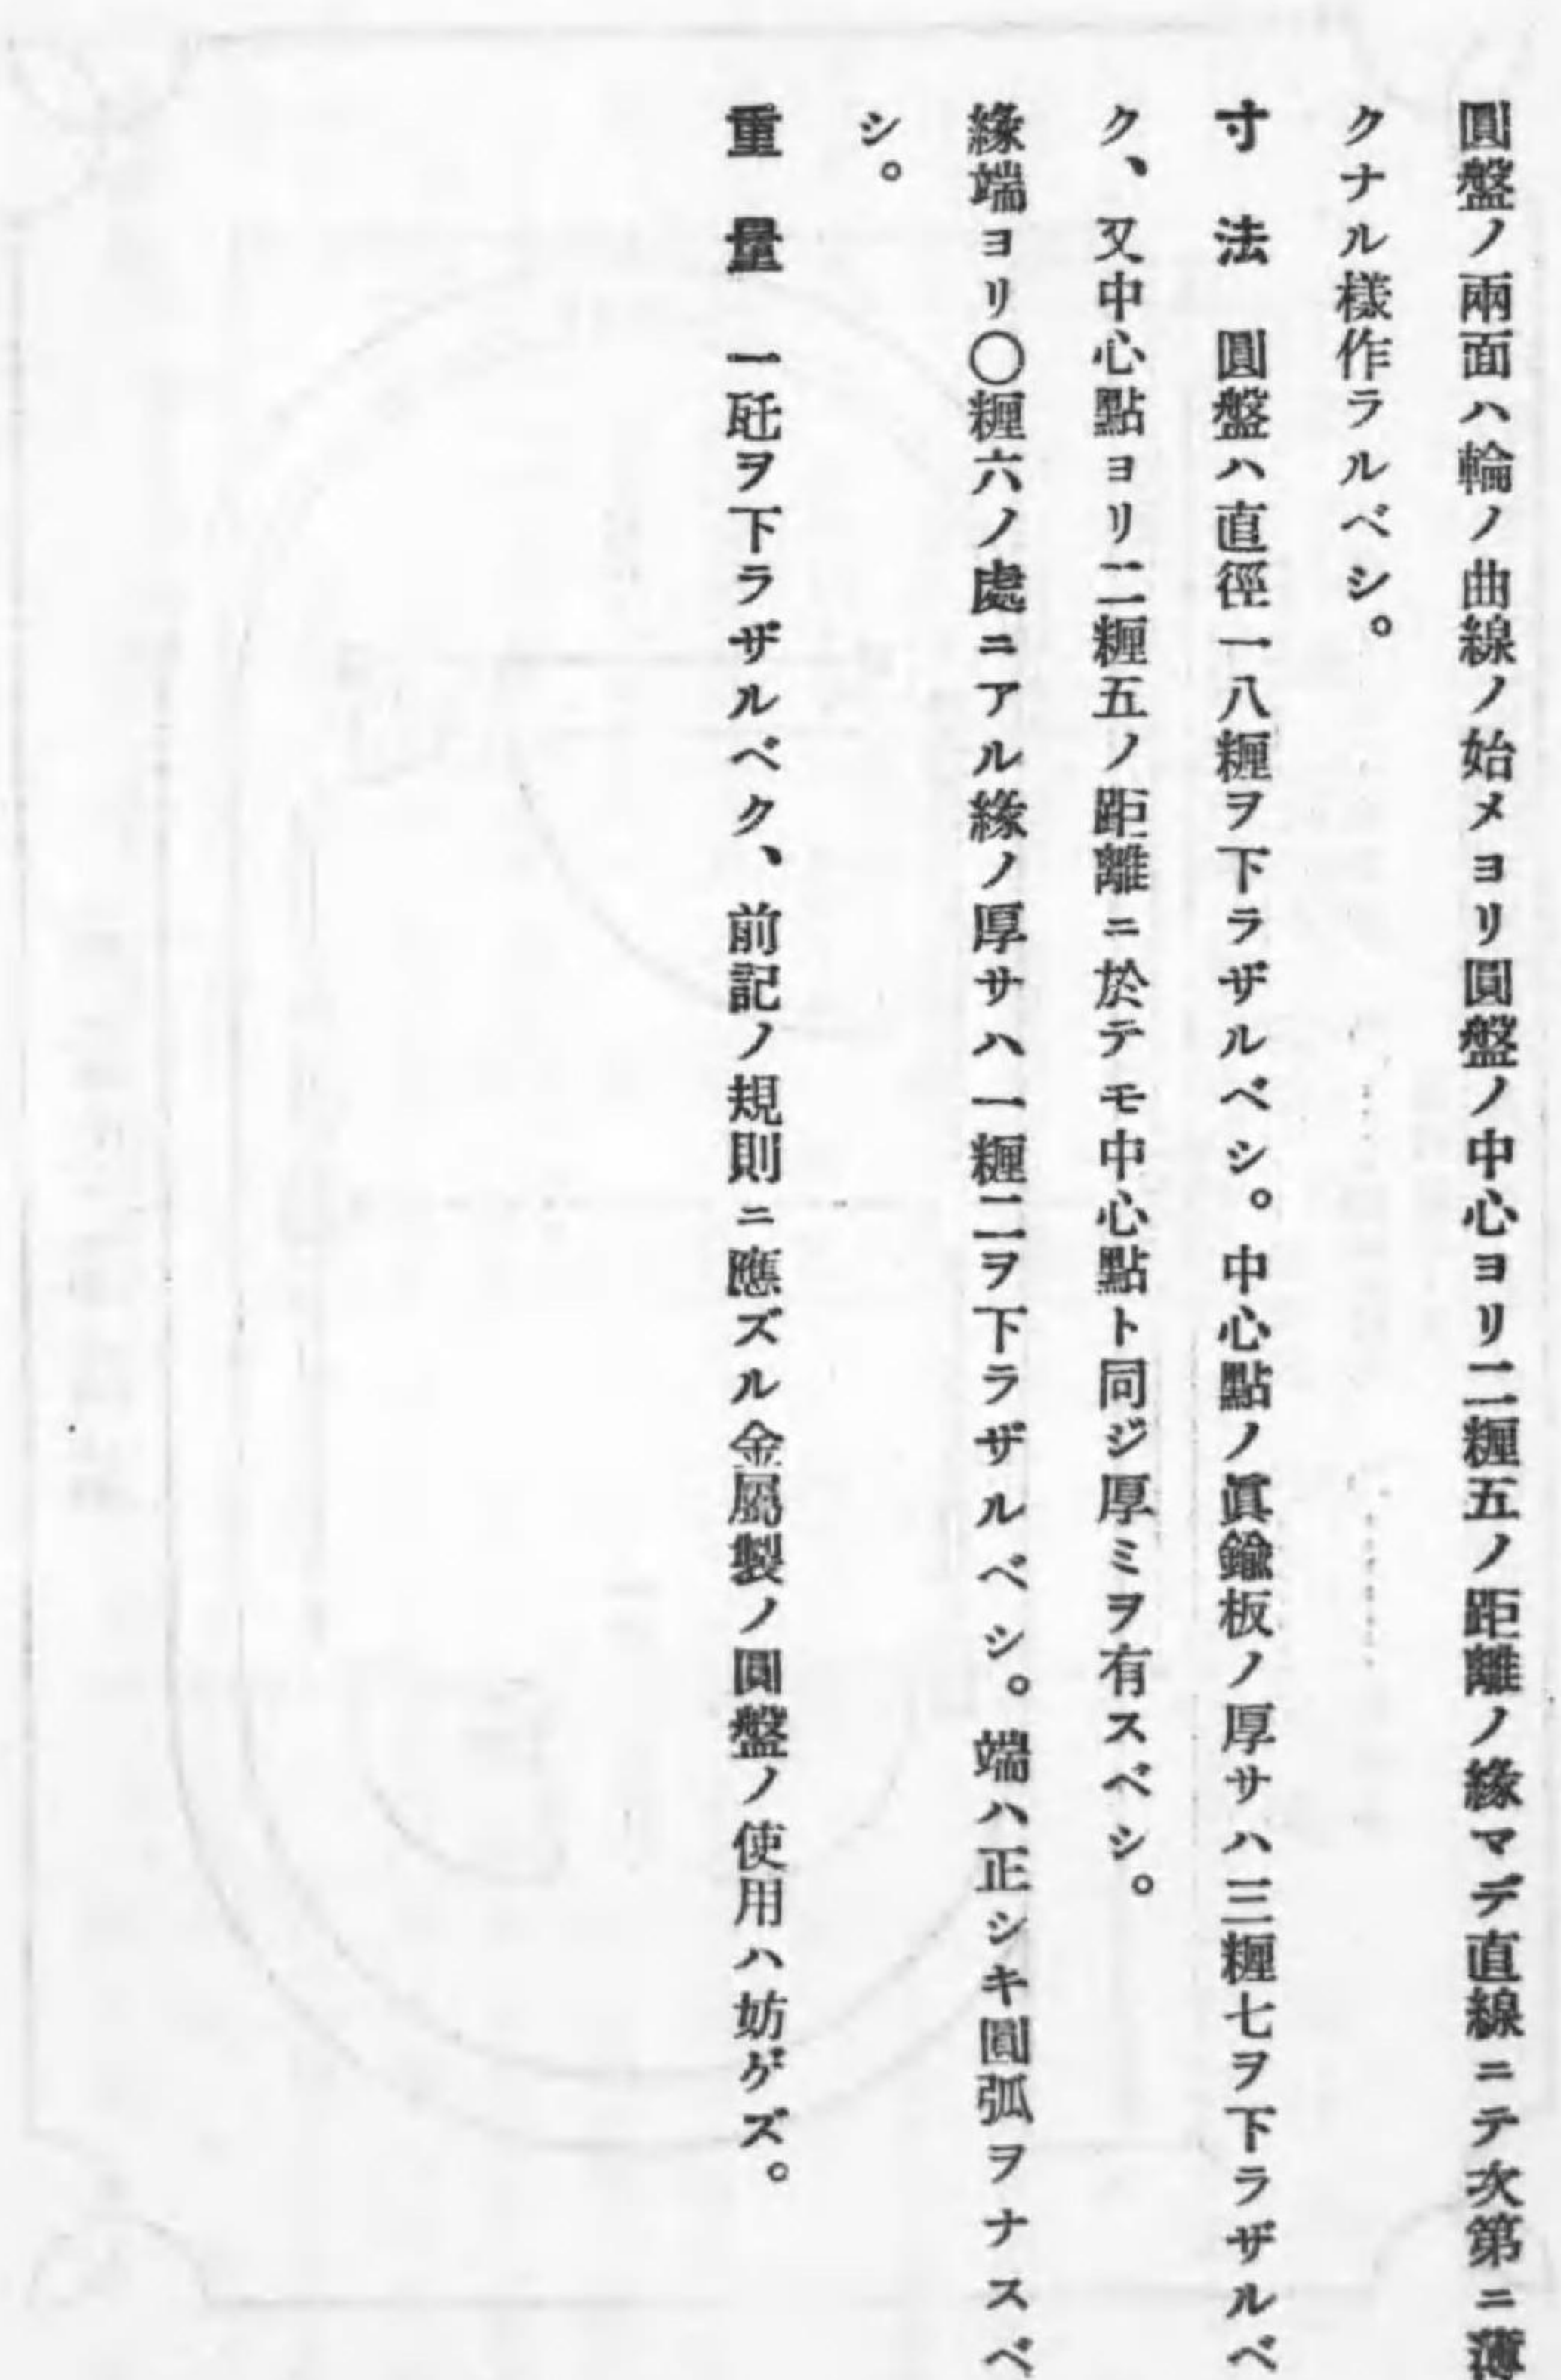 圓盤ノ兩面ハ輪ノ曲線ノ始メヨリ圓盤ノ中心ヨリ二糎五ノ距離ノ緣マデ直線ニテ次第ニ薄
クナル樣作ラルベシ。
寸　法　圓盤ハ直徑一八糎ヲ下ラザルベシ。中心點ノ眞鍮板ノ厚サハ三糎七ヲ下ラザルベ
ク、又中心點ヨリ二糎五ノ距離ニ於テモ中心點ト同ジ厚ミヲ有スベシ。
緣端ヨリ〇糎六ノ處ニアル緣ノ厚サハ一糎二ヲ下ラザルベシ。端ハ正シキ圓弧ヲナスベ
シ。
重　量　一瓩ヲ下ラザルベク、前記ノ規則ニ應ズル金屬製ノ圓盤ノ使用ハ妨ゲズ。